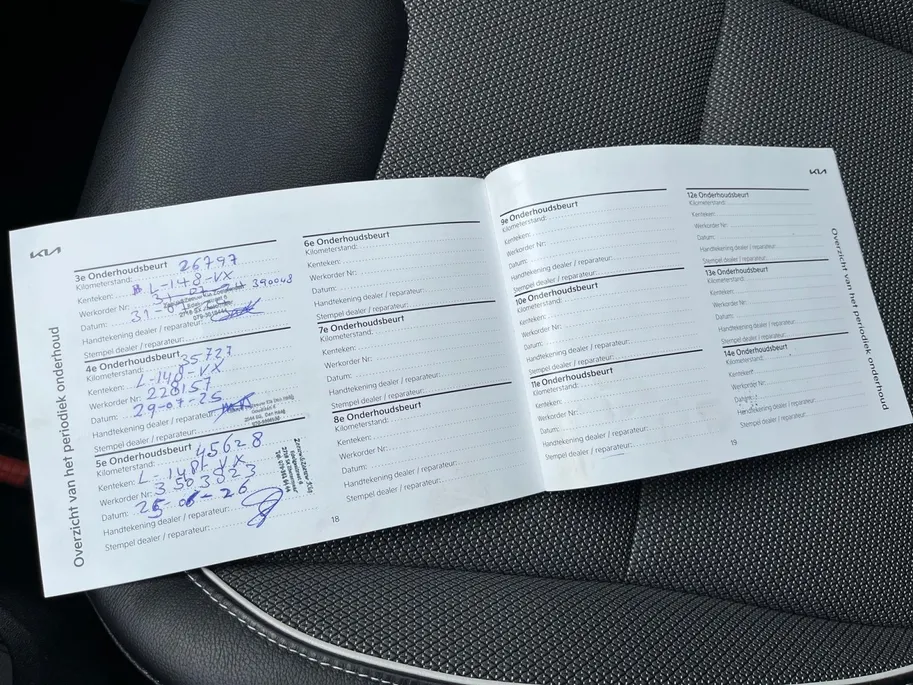 KIA
Overzicht van het periodiek onderhoud
3e Onderhoudsbeurt
Kilometerstand: 26797
Kenteken: L-148-VX
Werkorder Nr: 390008
Datum: 31-07-24
Handtekening dealer / reparateur:
Stempel dealer / reparateur:
4e Onderhoudsbeurt
Kilometerstand: 35727
Kenteken: L-148-VX
Werkorder Nr: 228157
Datum: 29-07-25
Handtekening dealer / reparateur:
Stempel dealer / reparateur:
5e Onderhoudsbeurt
Kilometerstand: 45628
Kenteken: L-148-VX
Werkorder Nr: 350323
Datum: 26
Handtekening dealer / reparateur:
Stempel dealer / reparateur:
6e Onderhoudsbeurt
Kilometerstand:
Kenteken:
Werkorder Nr:
Datum:
Handtekening dealer / reparateur:
Stempel dealer / reparateur:
7e Onderhoudsbeurt
Kilometerstand:
Kenteken:
Werkorder Nr:
Datum:
Handtekening dealer / reparateur:
Stempel dealer / reparateur:
8e Onderhoudsbeurt
Kilometerstand:
Kenteken:
Werkorder Nr:
Datum:
Handtekening dealer / reparateur:
Stempel dealer / reparateur:
18
9e Onderhoudsbeurt
Kilometerstand:
Kenteken:
Werkorder Nr:
Datum:
Handtekening dealer / reparateur:
Stempel dealer / reparateur:
10e Onderhoudsbeurt
Kilometerstand:
Kenteken:
Werkorder Nr:
Datum:
Handtekening dealer / reparateur:
Stempel dealer / reparateur:
11e Onderhoudsbeurt
Kilometerstand:
Kenteken:
Werkorder Nr:
Datum:
Handtekening dealer / reparateur:
Stempel dealer / reparateur:
12e Onderhoudsbeurt
Kilometerstand:
Kenteken:
Werkorder Nr:
Datum:
Handtekening dealer / reparateur:
Stempel dealer / reparateur:
13e Onderhoudsbeurt
Kilometerstand:
Kenteken:
Werkorder Nr:
Datum:
Handtekening dealer / reparateur:
Stempel dealer / reparateur:
14e Onderhoudsbeurt
Kilometerstand:
Kenteken:
Werkorder Nr:
Datum:
Handtekening dealer / reparateur:
19
KIA
Overzicht van het periodiek onderhoud